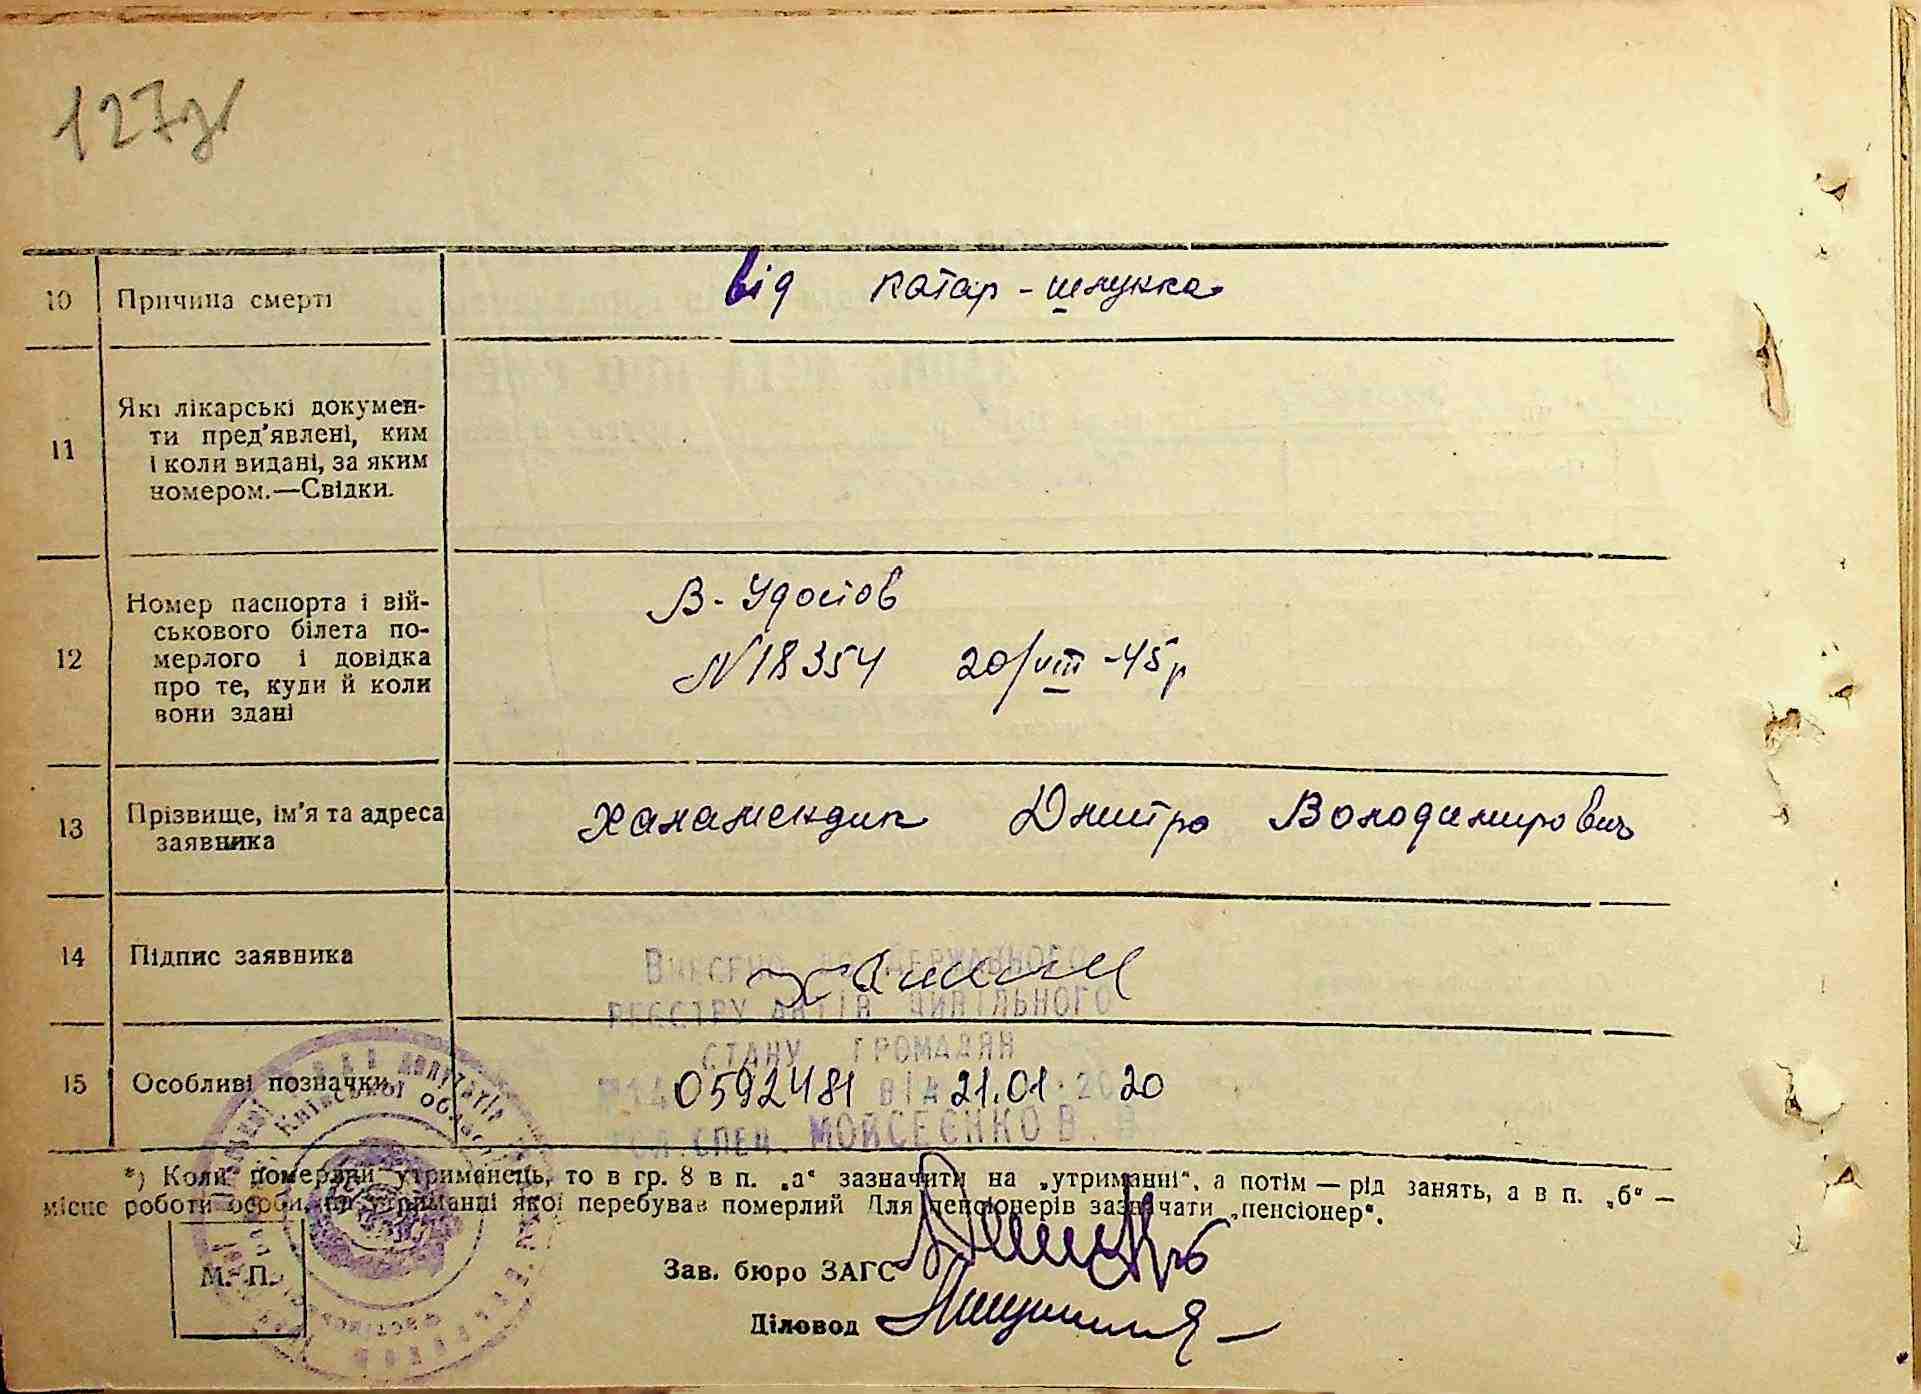 127
10 Причина смерті від катар-шлунка
11 Які лікарські докумен-
ти пред'явлені, ким
і коли видані, за яким
номером.—Свідки.
12 Номер паспорта і вій-
ськового білета по-
мерлого і довідка
про те, куди й коли
вони здані
В-Удостов
N 18354 20/VIII-45р
13 Прізвище, ім'я та адреса
заявника
Дмитро Володимирович
14 Підпис заявника
Внесено до Державного
реєстру актів цивільного
стану громадян
15 Особливі позначки
0592481 від 21.01.2020
Мойсеєнко В.
*) Коли померлий утриманець, то в гр. 8 в п. „а“ зазначити на „утриманні“, а потім — рід занять, а в п. „б“ —
місце роботи особи, на утриманні якої перебував померлий Для пенсіонерів зазначати „пенсіонер“.
М. П.
Зав. бюро ЗАГС
Діловод